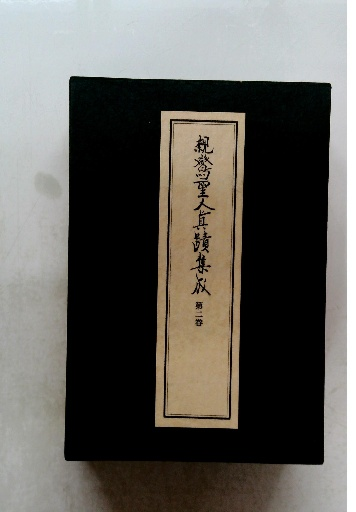 親鸞聖人真蹟集成
第二巻